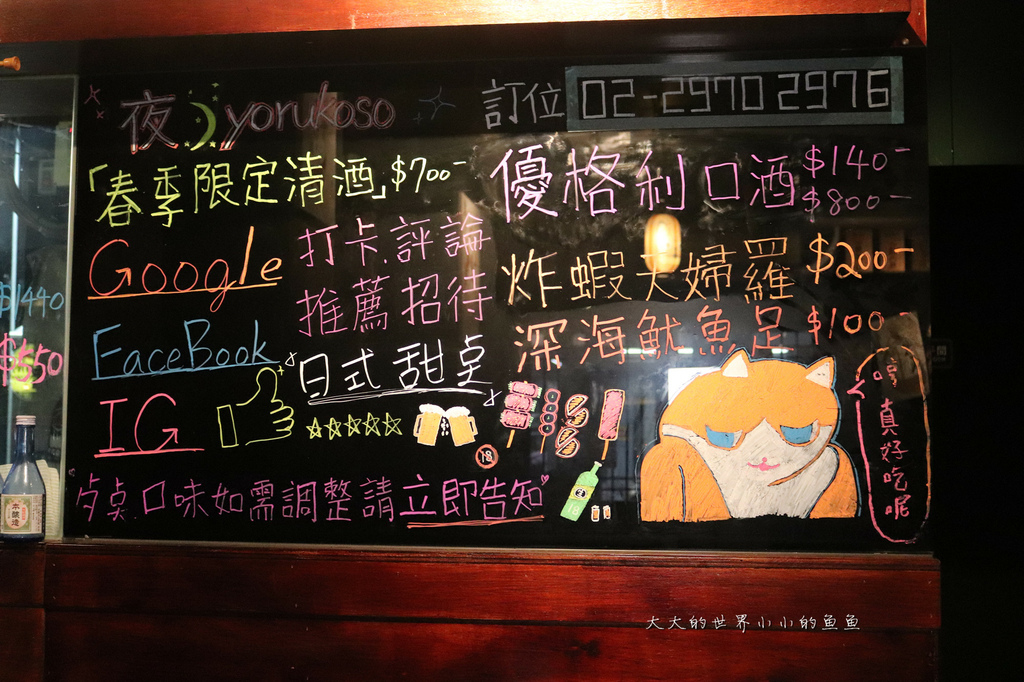 夜 yorukoso
訂位 02-2970 2976
「春季限定清酒」$700-
優格利口酒 $140-
$800-
Google
打卡.評論
推薦招待
FaceBook
日式甜點
IG
炸蝦天婦羅 $200-
深海魷魚足 $100-
18
哼真好吃呢
"点桌口味如需調整請立即告知"
$1440
$550
本醸造
大大的世界小小的魚魚